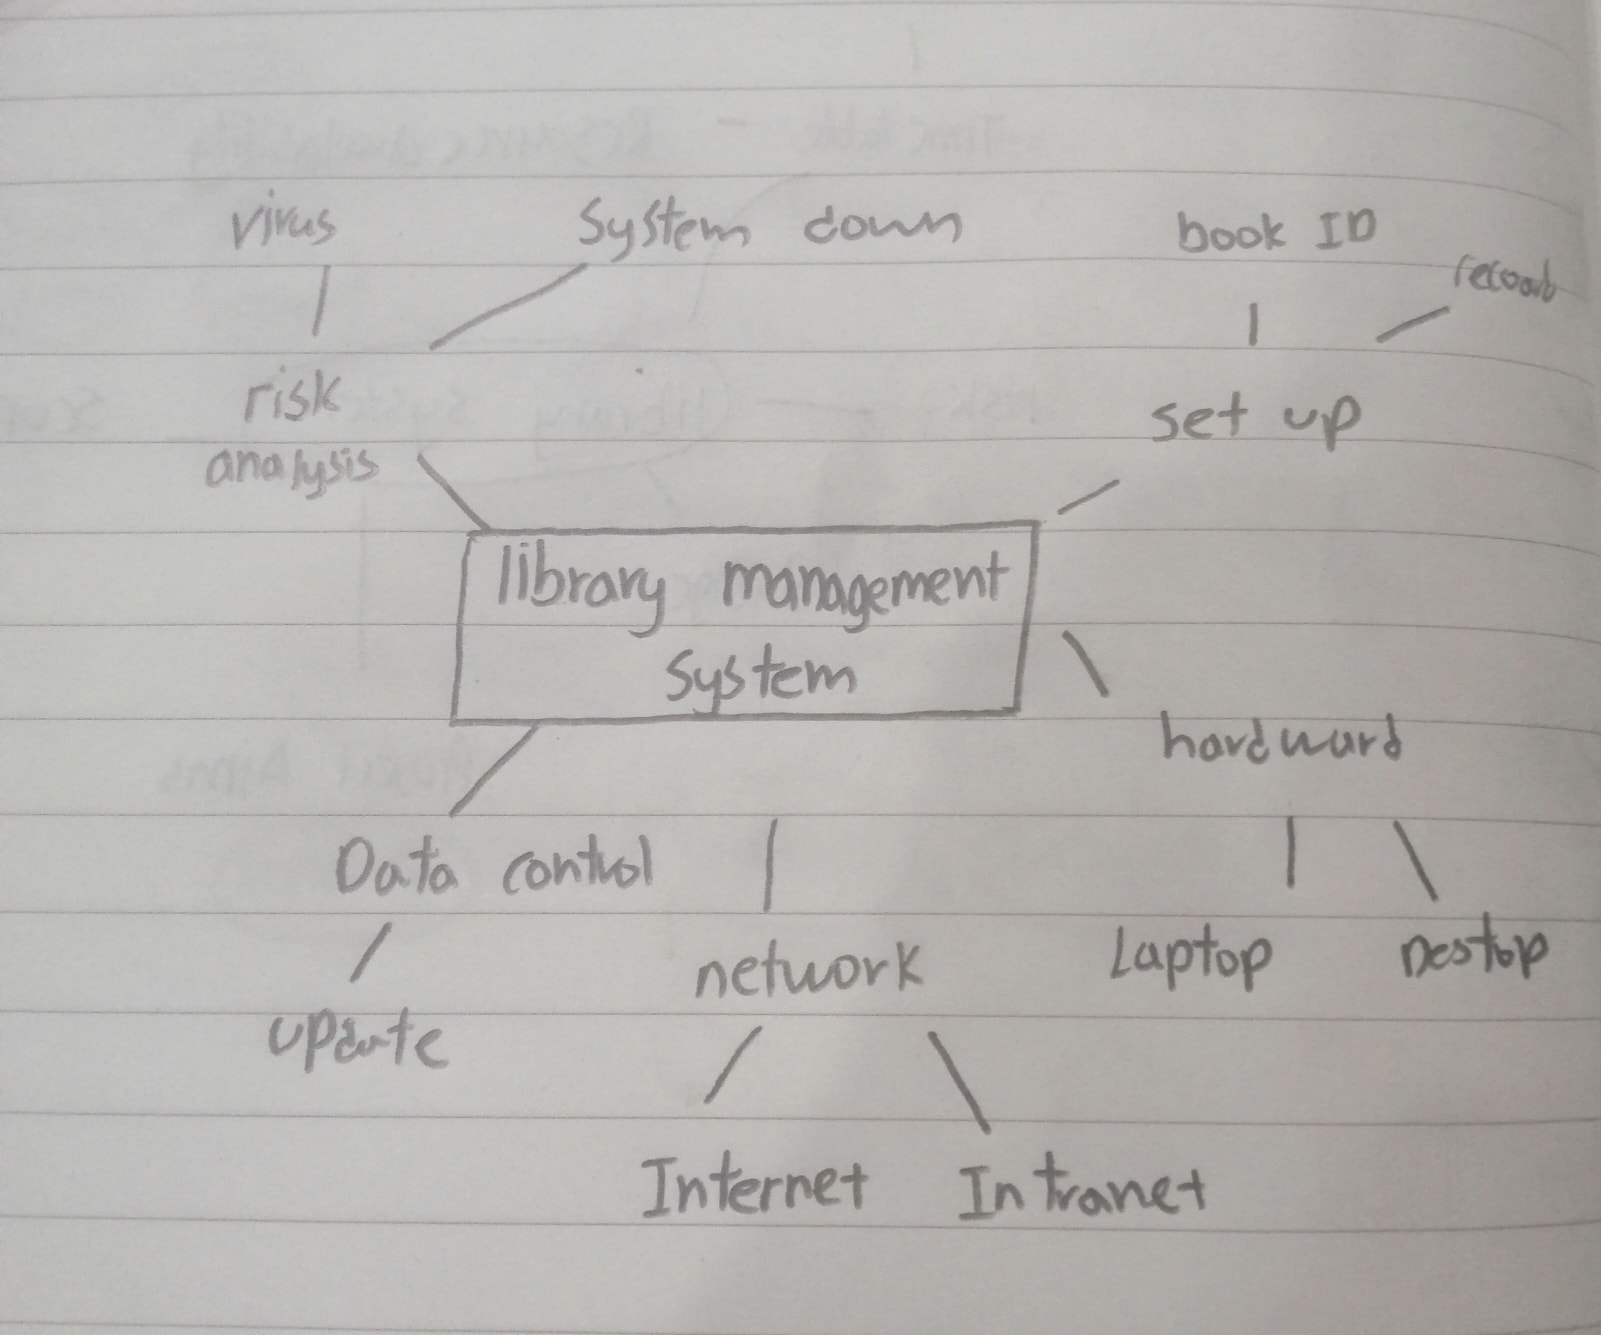 virus
System down
book ID
record
risk
analysis
set up
library management
System
hardward
Data control
network
Laptop
Destop
update
Internet
Intranet